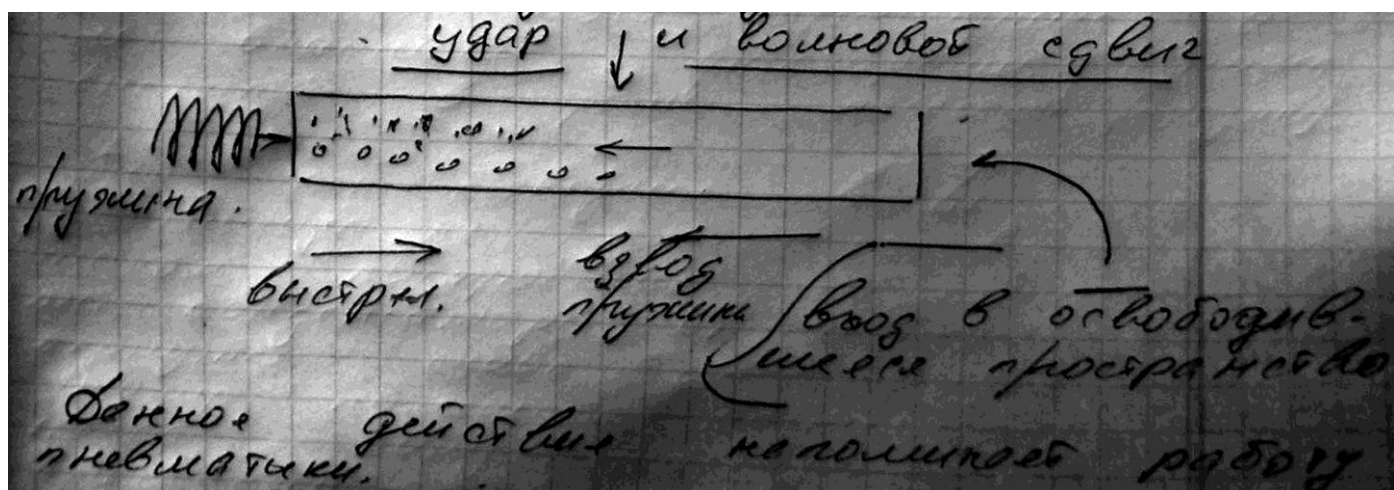 удар и волновой сдвиг
пружина.
выстрел.
взвод
пружины
вход в освободив-
шееся пространство
Данное действие напоминает работу
пневматики.